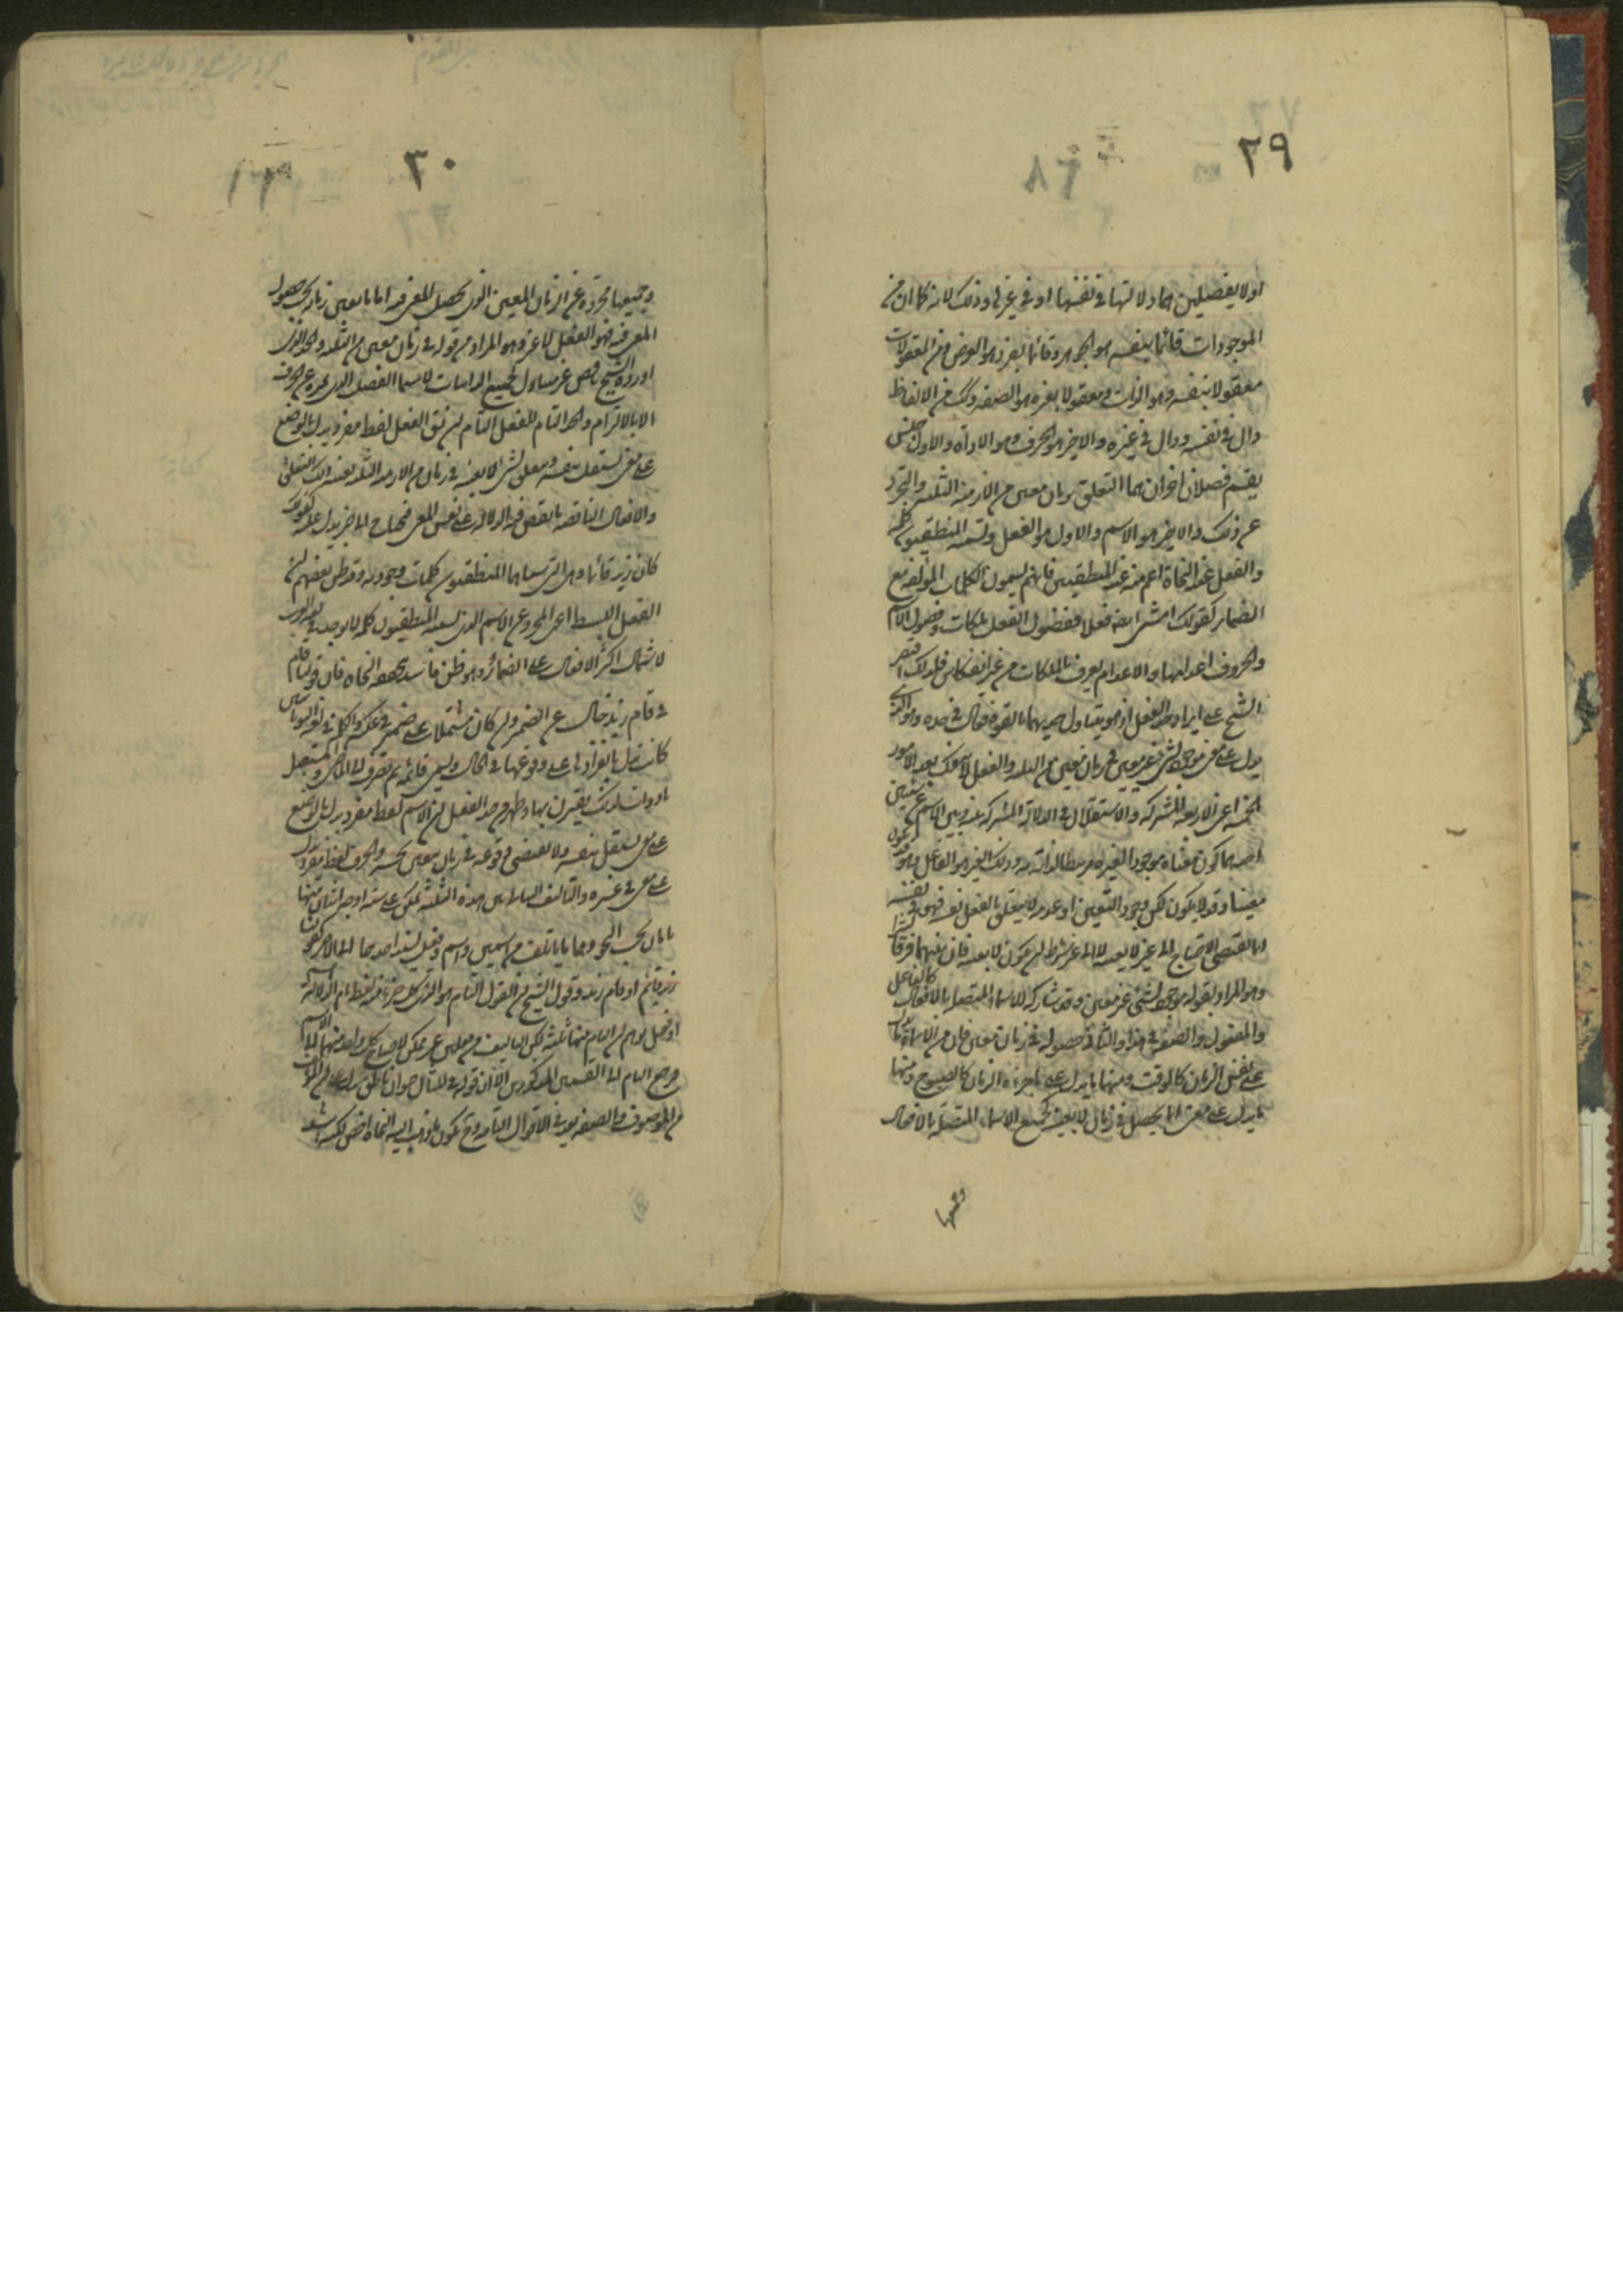 ٢٩
اولا بفصلين هما دلالتها فى نفسها او فى غيرها وذلك لانه كما ان من
الموجودات قائما بنفسه هو الجوهر وقائما بغيره هو العرض ومن المعقولات
معقولا بنفسه وهو الذات ومعقولا بغيره هو الصفة كذلك من الالفاظ
دال فى نفسه ودال فى غيره والاخير هو الحرف وهو الاداة والاول جنس
يقسمه فصلان اخران هما التعلق بزمان معين من الازمنة الثلثة والتجرد
عن ذلك والاخير هو الاسم والاول هو الفعل ويسميه المنطقيون كلمة
والفعل عند النحاة اعم منه عند المنطقيين فانهم يسمون الكلمات المؤلفة مع
الضمائر كقولك امشى ايضا فعلا ففصول الفعل ملكات وفصول الاسم
والحروف اعدامها والاعدام يعرف بالملكات من غير انعكاس فلذلك اقتصر
الشيخ على ايراد حد الفعل اذ هو يتناول حديهما بالقوة فقال فى حده وهو الذى
يدل على معنى موجود لشئ غير معين فى زمان معين من الثلثة والفعل لا ينفك بعد الامور
الخمسة اعنى الاربعة المشتركة والاستقلال فى الدلالة المشتركة بينه وبين الاسم عن شيئين
احدهما كون معناه موجودا لغيره مرتبطا لذاته به وذلك الغير هو الفاعل وهو قد يكون
معينا وقد لا يكون لكن وجود التعيين او عدمه لا يتعلق بالفعل نفسه فهو فى نفسه
انما يقتضى الاحتياج الى غير لا بعينه لا الى غير بشرط ان يكون لا بعينه فان بينهما فرقا
وهو المراد بقوله موجود لشئ غير معين وقد تشاركه الاسماء المتصلة بالافعال كالفاعل
والمفعول والصفة فى هذا والثانى حصوله فى زمان معين فان من الاسماء ما يدل
على نفس الزمان كالوقت ومنها ما يدل على ما جزؤه الزمان كالصبوح ومنها
ما يدل على معنى انما يحصل فى زمان لا بعينه كجميع الاسماء المتصلة بالافعال
وجميعها
٣٠
وجميعها مجردة عن الزمان المعين الذى يحصل المعنى فيه اما ما يعين زمان حصول
المعنى فيه فهو الفعل لا غير وهو المراد من قوله فى زمان معين من الثلثة والحد الذى
اورده الشيخ ناقص غير متناول لجميع الذاتيات لا سيما الفصل الذى يميزه عن الحرف
الا بالالتزام والحد التام للفعل التام ان يقال الفعل لفظ مفرد يدل بالوضع
على معنى يستقل بنفسه ويتعلق بشئ لا بعينه فى زمان من الازمنة الثلثة
والافعال الناقصة ما نقص فيه الدلالة على نفس المعنى فيحتاج الى جزء يدل عليه كقولك
كان زيد قائما وهى التى يسميها المنطقيون كلمات وجودية وقد ظن بعضهم ان
الفعل البسيط اعنى المجرد عن الاسم الذى يسميه المنطقيون كلمة لا يوجد فى لغة العرب
لاشتمال اكثر الافعال على الضمائر وهو ظن فاسد يحققه النحاة فان قولنا قام
فى قام زيد خال عن الضمير وان كان مشتملا على ضمير فى عكسه والكلمة فى لغة اليونانيين
كانت تدل بانفرادها على وقوعها فى الحال وليس قائمة ثم تصرف الى الماضى والمستقبل
بادوات لذلك يقترن بها وظهر من حد الفعل ان الاسم لفظ مفرد يدل بالوضع
على معنى يستقل بنفسه ولا يقتضى وقوعه فى زمان معين بحسبه والحرف لفظ مفرد يدل
على معنى فى غيره والتأليف الثنائى من هذه الثلثة يمكن على ستة اوجه اثنان منها
تامان بحسب النحو وهما ما يأتلف من اسمين او اسم وفعل يسند احدهما الى الاخر كقولنا
زيد قائم او قام زيد وقول الشيخ ان القول التام هو الذى كل جزء منه لفظ تام الدلالة اسم
او فعل يوهم ان التام منها ثلثة لكن التأليف من فعلين غير ممكن لاحتياج كل واحد منهما الى الاسم
فرجع التام الى القسمين المذكورين الا ان قوله فى المثال حيوان ناطق يدل على ان المؤلف
من الموصوف والصفة يعد فى الاقوال التامة وح يكون ما ذهب اليه النحاة اخص لكنه اشهر